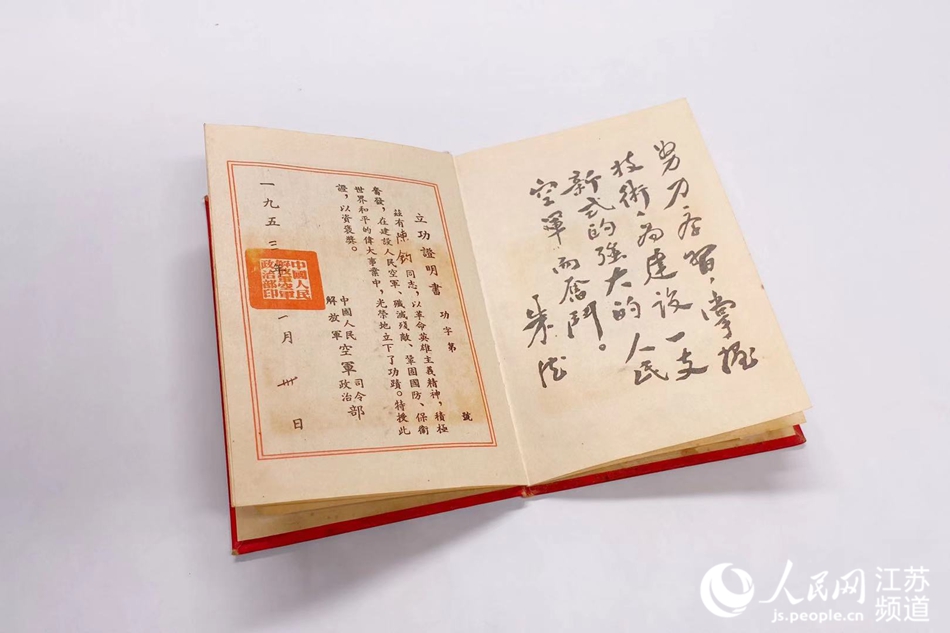 努力学習，掌握
技術，为建设一支
新式的强大的人民
空軍而奮鬥。
朱德
立功證明書 功字第 號
茲有陳鈞同志，以革命英雄主義精神，積極
奮發，在建設人民空軍、殲滅殘敵、鞏固國防、保衛
世界和平的偉大事業中，光榮地立下了功蹟。特授此
證，以資褒獎。
中國人民解放軍空軍司令部政治
一九五三年一月卅日
中國人民
解放軍空軍
政治部印
人民网 江苏频道
js.people.cn